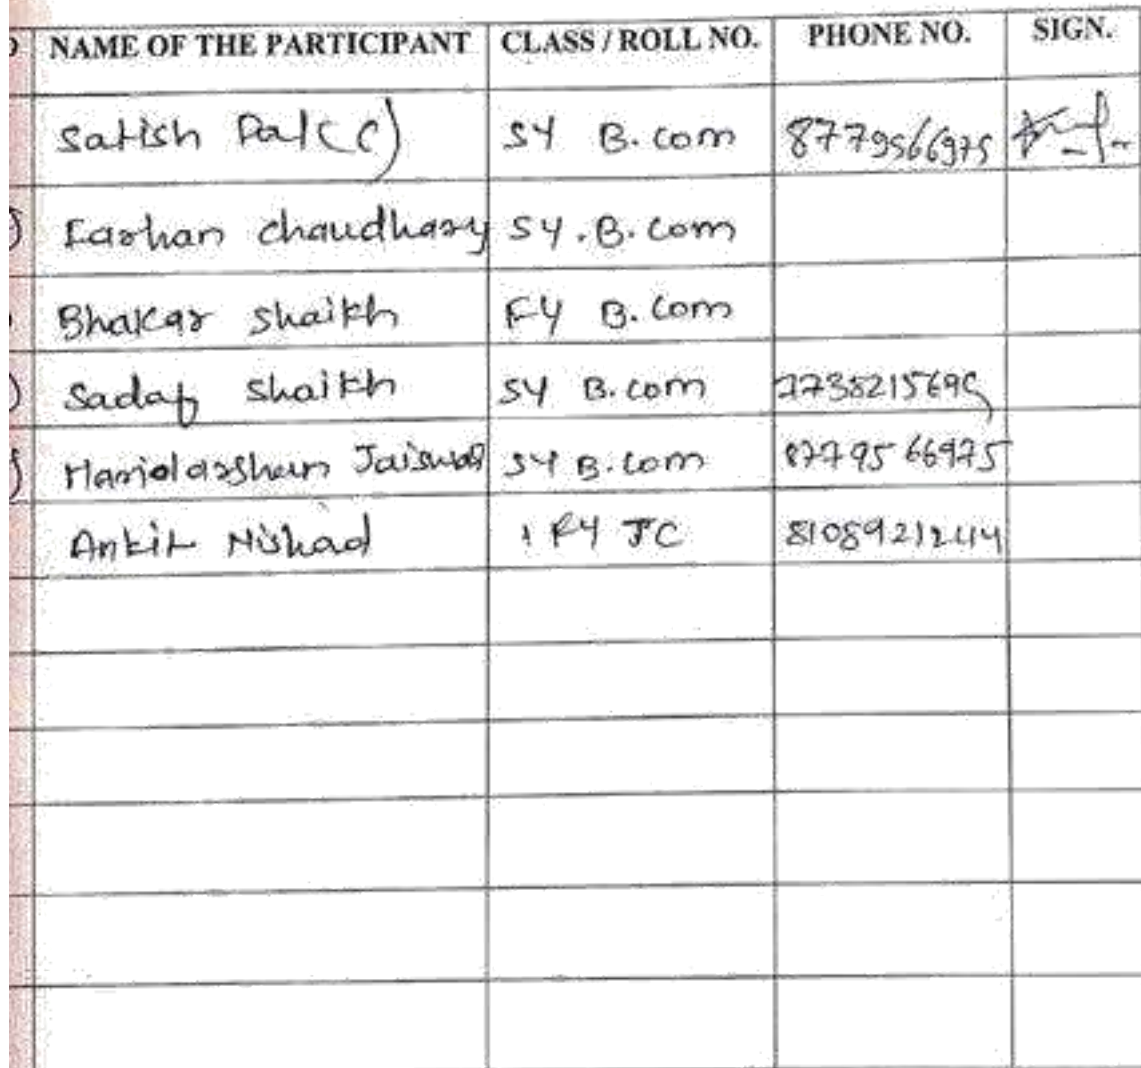 NAME OF THE PARTICIPANT CLASS / ROLL NO. PHONE NO. SIGN.
Satish Pal (C) SY B.com 8779566975
Farhan chaudhary SY.B.com
Bhakar shaikh FY B.com
Sadaf shaikh SY B.com
Haridarshan Jaiswal SY B.com 8779566975
Ankit Nishad FY JC